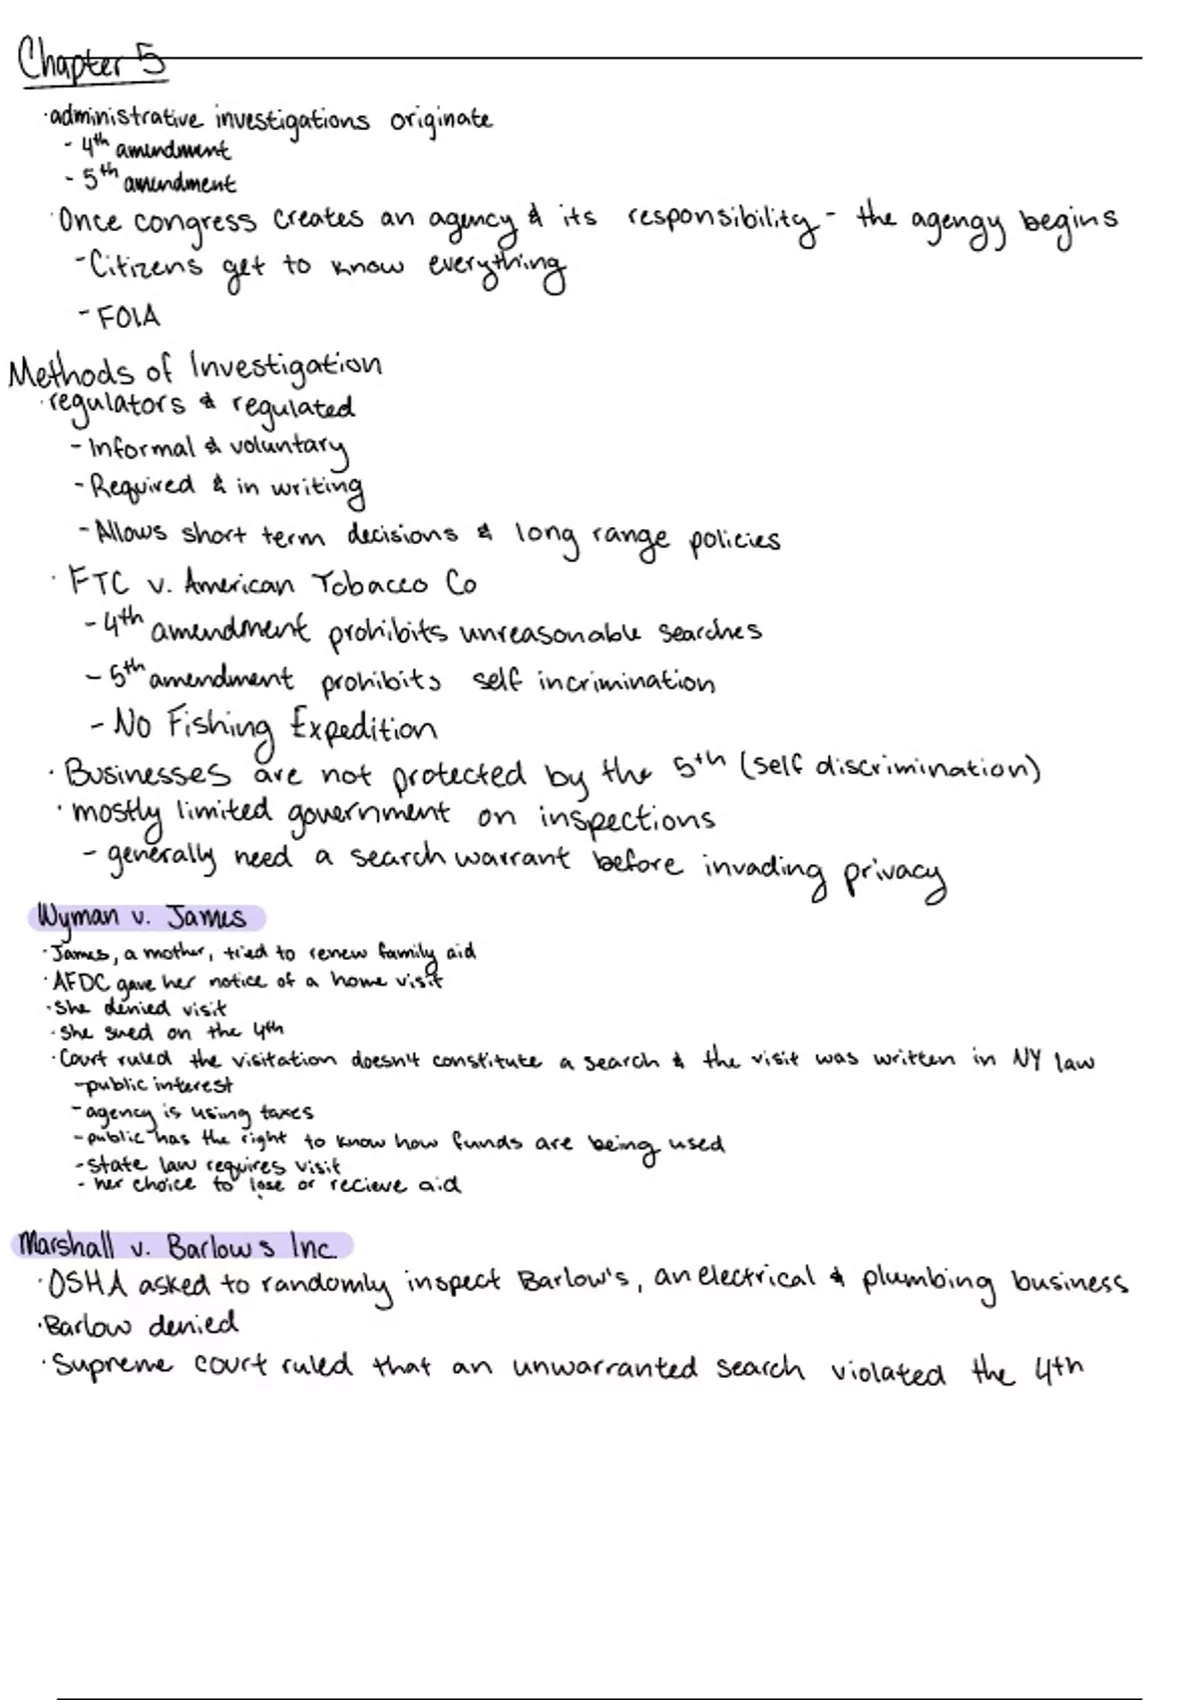 Chapter 5
·administrative investigations originate
- 4th amendment
- 5th amendment
·Once congress creates an agency & its responsibility - the agengy begins
-Citizens get to know everything
- FOIA
Methods of Investigation
·regulators & regulated
- Informal & voluntary
- Required & in writing
- Allows short term decisions & long range policies
· FTC v. American Tobacco Co
- 4th amendment prohibits unreasonable searches
- 5th amendment prohibits self incrimination
- No Fishing Expedition
· Businesses are not protected by the 5th (self discrimination)
· mostly limited government on inspections
- generally need a search warrant before invading privacy
Wyman v. James
·James, a mother, tried to renew family aid
·AFDC gave her notice of a home visit
·She denied visit
·She sued on the 4th
·Court ruled the visitation doesn't constitute a search & the visit was written in NY law
-public interest
-agency is using taxes
-public has the right to know how funds are being used
-state law requires visit
- her choice to lose or recieve aid
Marshall v. Barlow's Inc.
·OSHA asked to randomly inspect Barlow's, an electrical & plumbing business
·Barlow denied
·Supreme court ruled that an unwarranted search violated the 4th